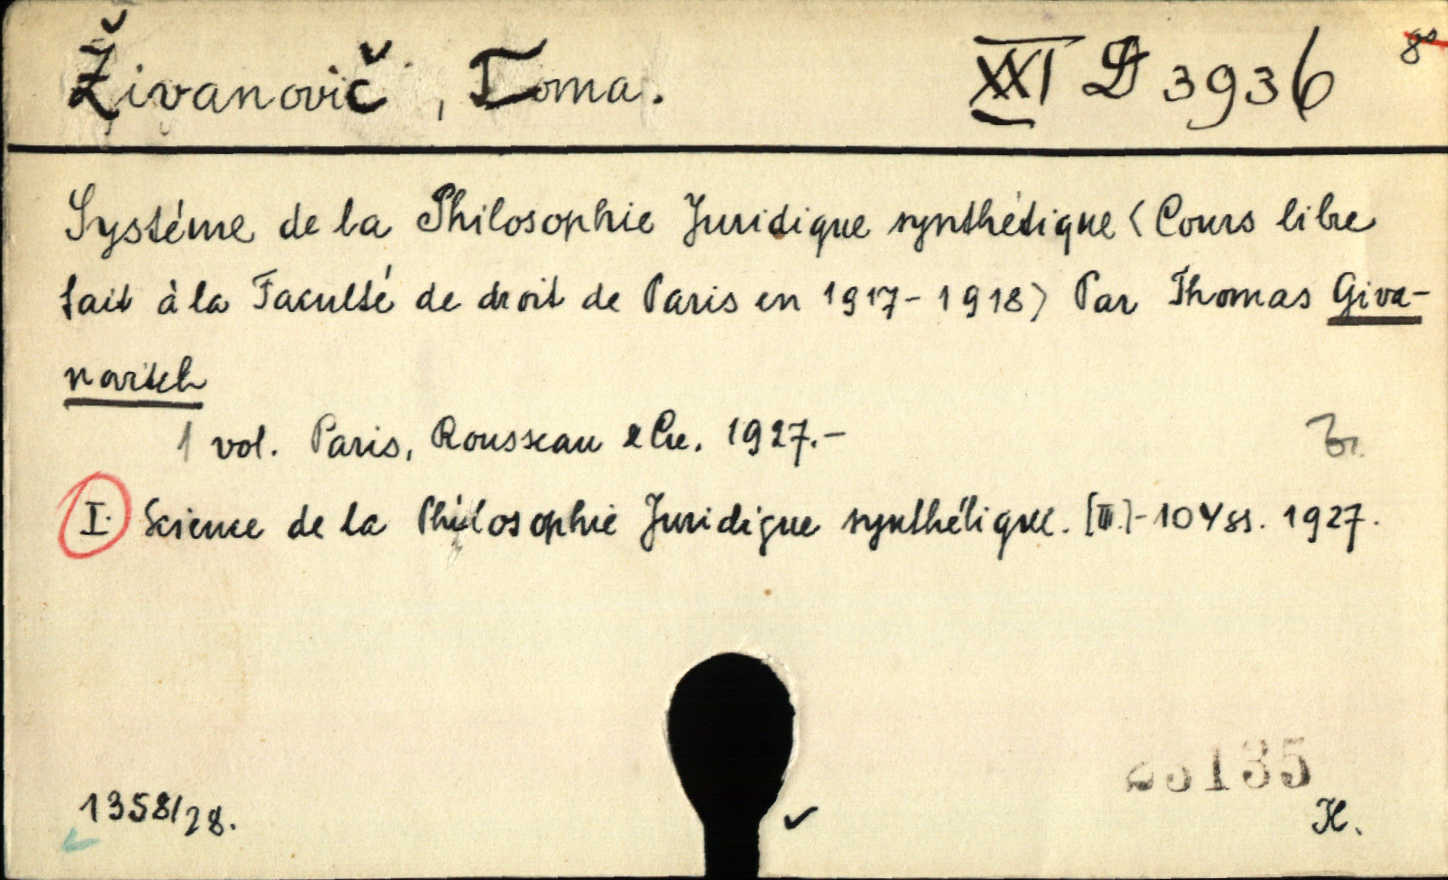 Živanovič, Toma. XXI D 3936 8°
Systéme de la Philosophie Juridique synthétique (Cours libre
fait à la Faculté de droit de Paris en 1917-1918) Par Thomas Giva-
novitch
1 vol. Paris, Rousseau & Cie. 1927.-
I. Science de la Philosophie Juridique synthétique. [III.]- 1927.
135
1358/28. K.